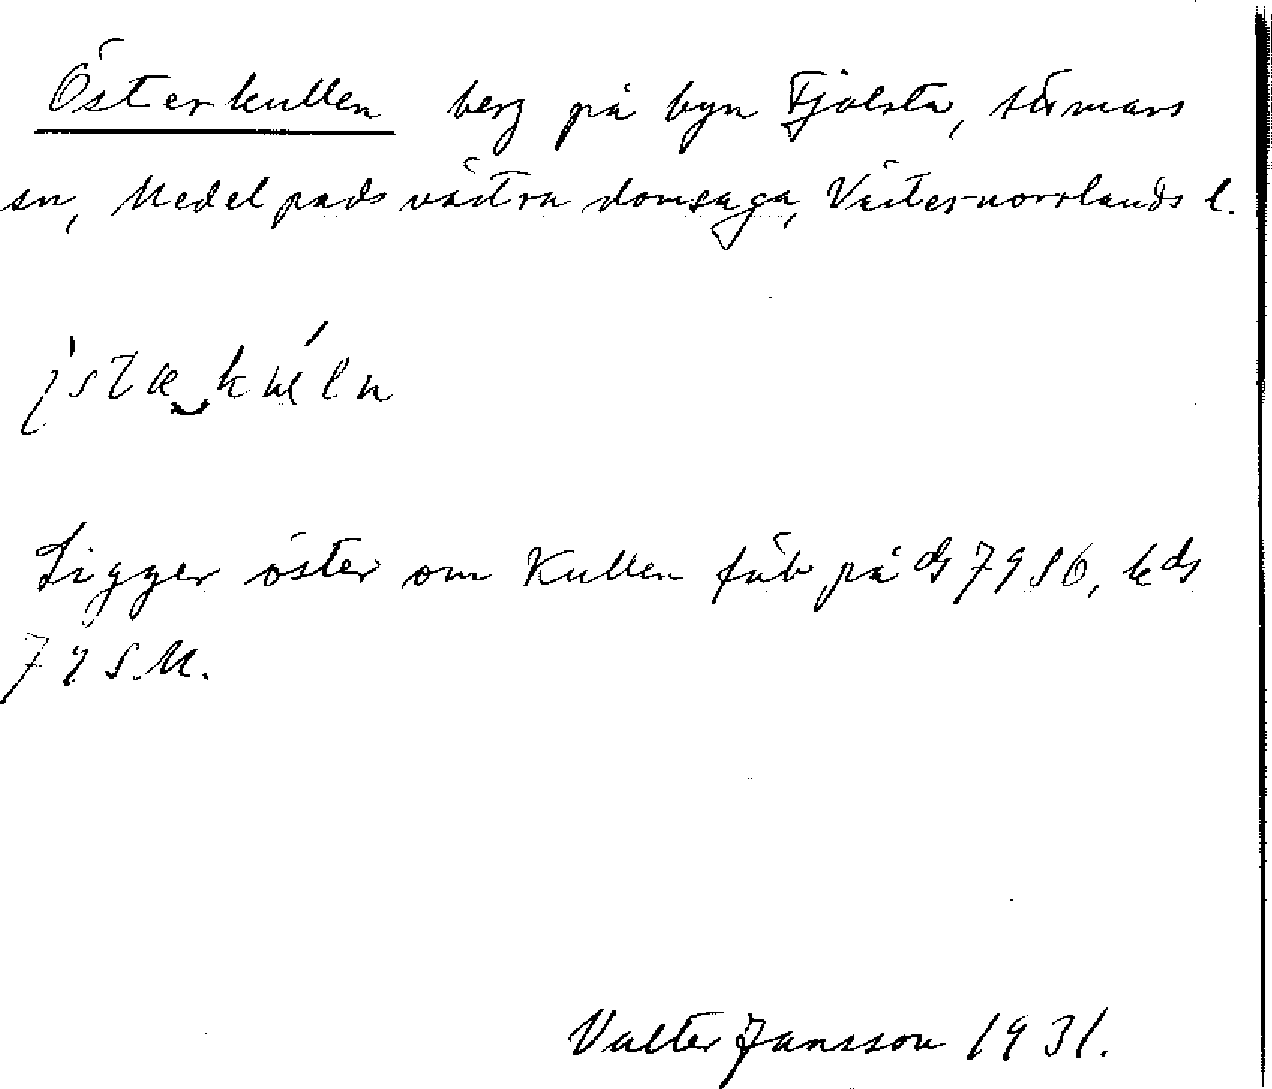 Österkullen berg på byn Fjolsta, Stmans
sn, Medelpads västra domsaga, Västernorrlands l.
Ligger öster om Kullen fäb på ds 79 S6, kds
79 S.M.
Valter Jansson 1931.